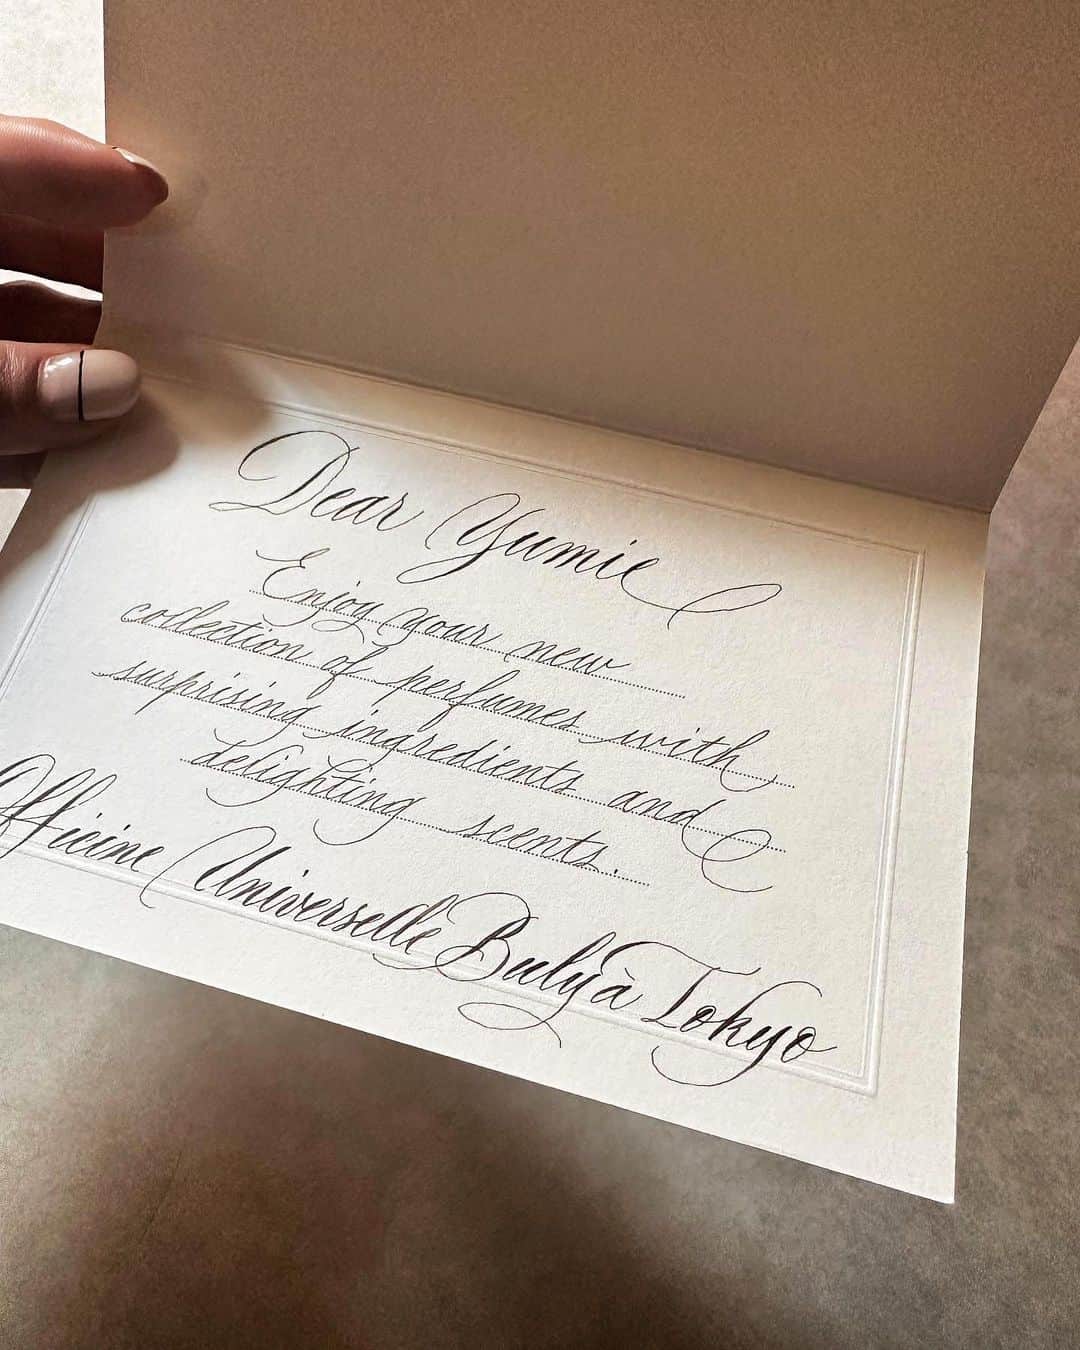 Dear Yumie
Enjoy your new
collection of perfumes with
surprising ingredients and
delighting scents.
Officine Universelle Bulyà Tokyo